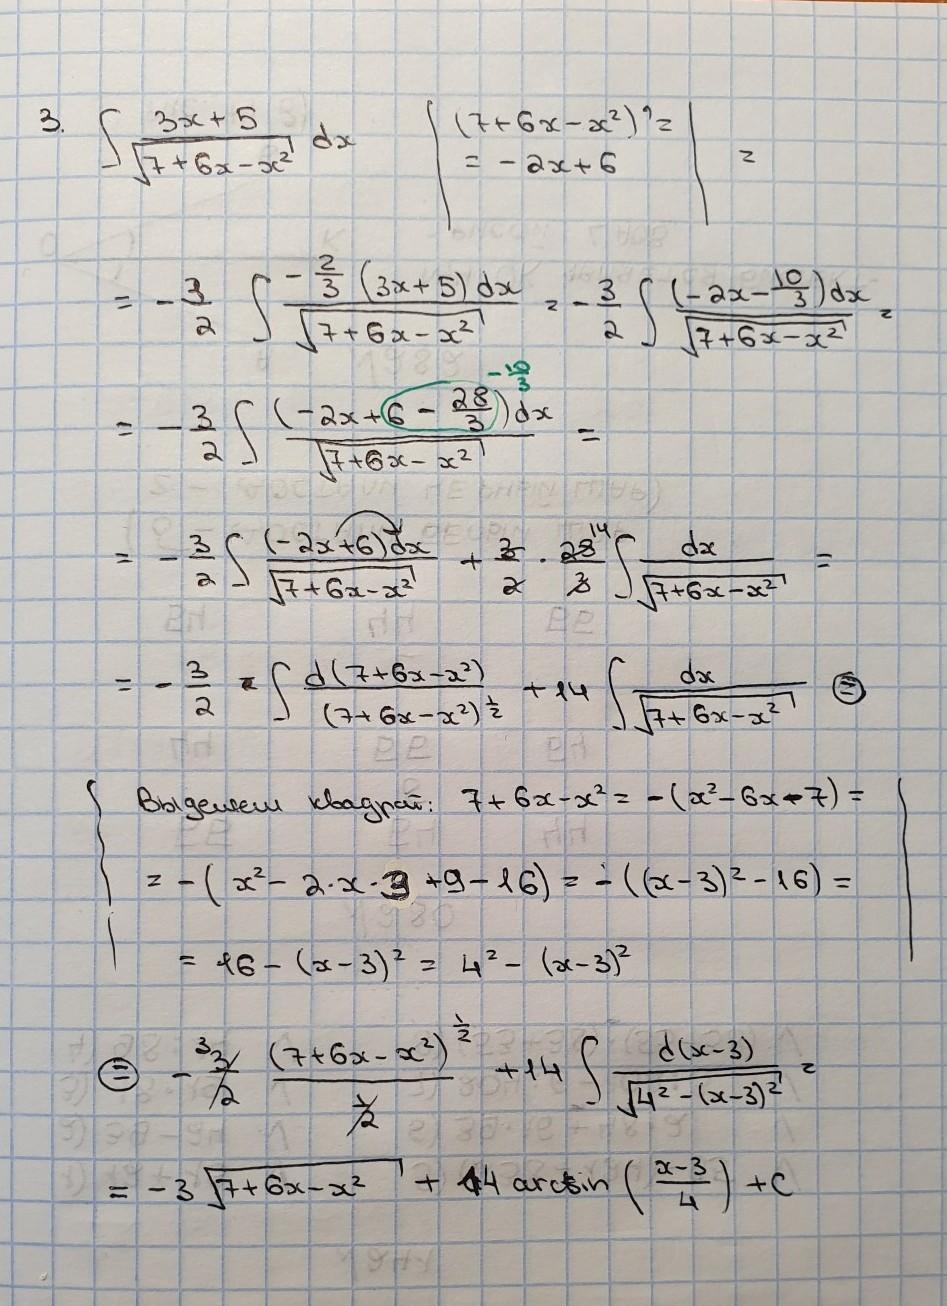 3. ∫ (3x+5)/√(7+6x-x²) dx | (7+6x-x²)' =
= -2x+6 | =
= -3/2 ∫ (-2/3 (3x+5)dx)/√(7+6x-x²) = -3/2 ∫ ((-2x-10/3)dx)/√(7+6x-x²) =
-10/3
= -3/2 ∫ ((-2x+6-28/3)dx)/√(7+6x-x²) =
= -3/2 ∫ ((-2x+6)dx)/√(7+6x-x²) + 3/2 · 28/3 14 ∫ dx/√(7+6x-x²) =
= -3/2 · ∫ d(7+6x-x²)/(7+6x-x²)^(1/2) + 14 ∫ dx/√(7+6x-x²) ⊜
Выделяем квадрат: 7+6x-x² = -(x²-6x-7) =
= -(x²-2·x·3+9-16) = -((x-3)²-16) =
= 16-(x-3)² = 4²-(x-3)²
⊜ -3 3/2 (7+6x-x²)^(1/2)/(1/2) + 14 ∫ d(x-3)/√(4²-(x-3)²) =
= -3√(7+6x-x²) + 14 arcsin((x-3)/4) + C